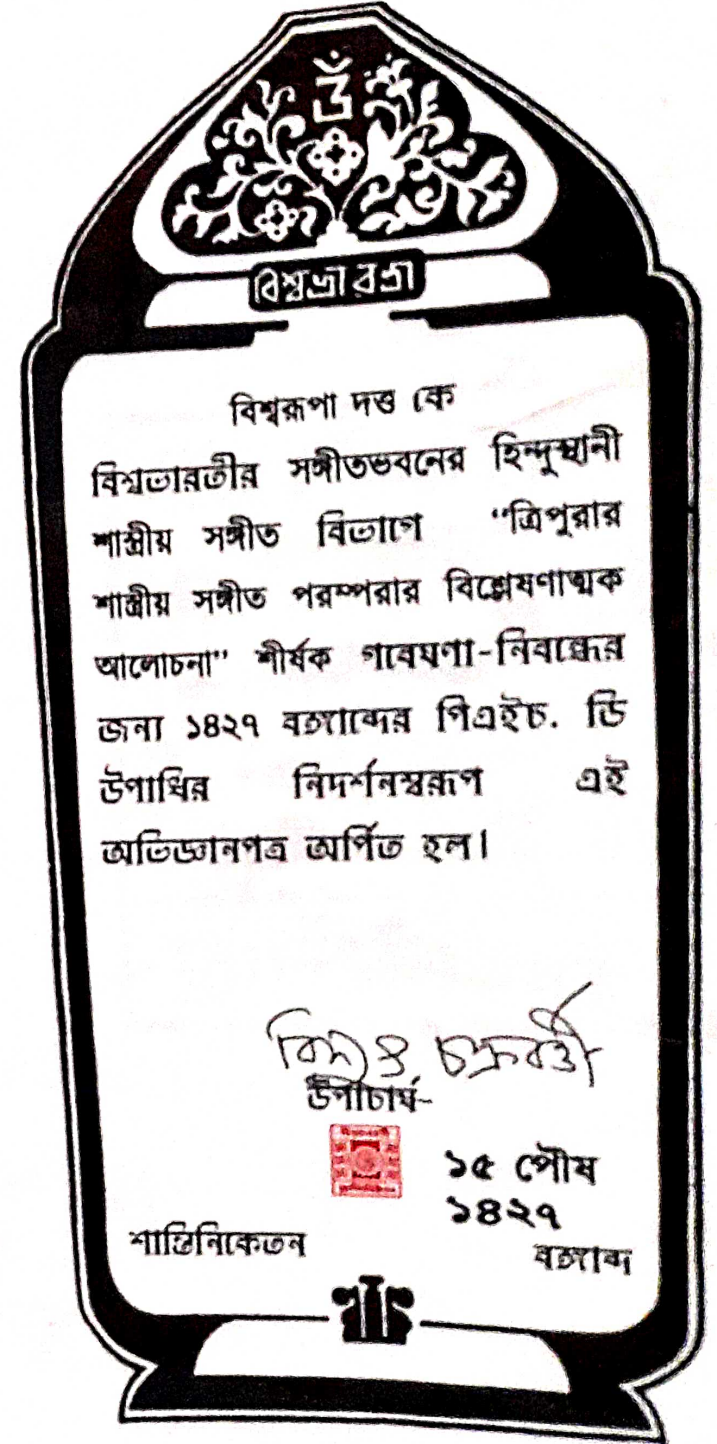 ওঁ
বিশ্বভারতী
বিশ্বরূপা দত্ত কে
বিশ্বভারতীর সঙ্গীতভবনের হিন্দুস্থানী
শাস্ত্রীয় সঙ্গীত বিভাগে “ত্রিপুরার
শাস্ত্রীয় সঙ্গীত পরম্পরার বিশ্লেষণাত্মক
আলোচনা” শীর্ষক গবেষণা-নিবন্ধের
জন্য ১৪২৭ বঙ্গাব্দের পিএইচ. ডি
উপাধির নিদর্শনস্বরূপ এই
অভিজ্ঞানপত্র অর্পিত হল।
চক্রবর্তী
উপাচার্য
১৫ পৌষ
১৪২৭
শান্তিনিকেতন বঙ্গাব্দ